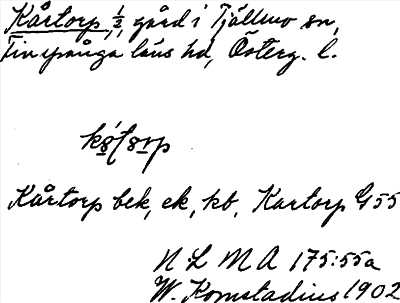 Kårtorp, ½, gård i Tjällmo sn,
Finspånga läns hd, Österg. l.
Kårtorp bek, ek, kb, Kartorp G 55
N L M A 175:55a
W. Kornstadius 1902